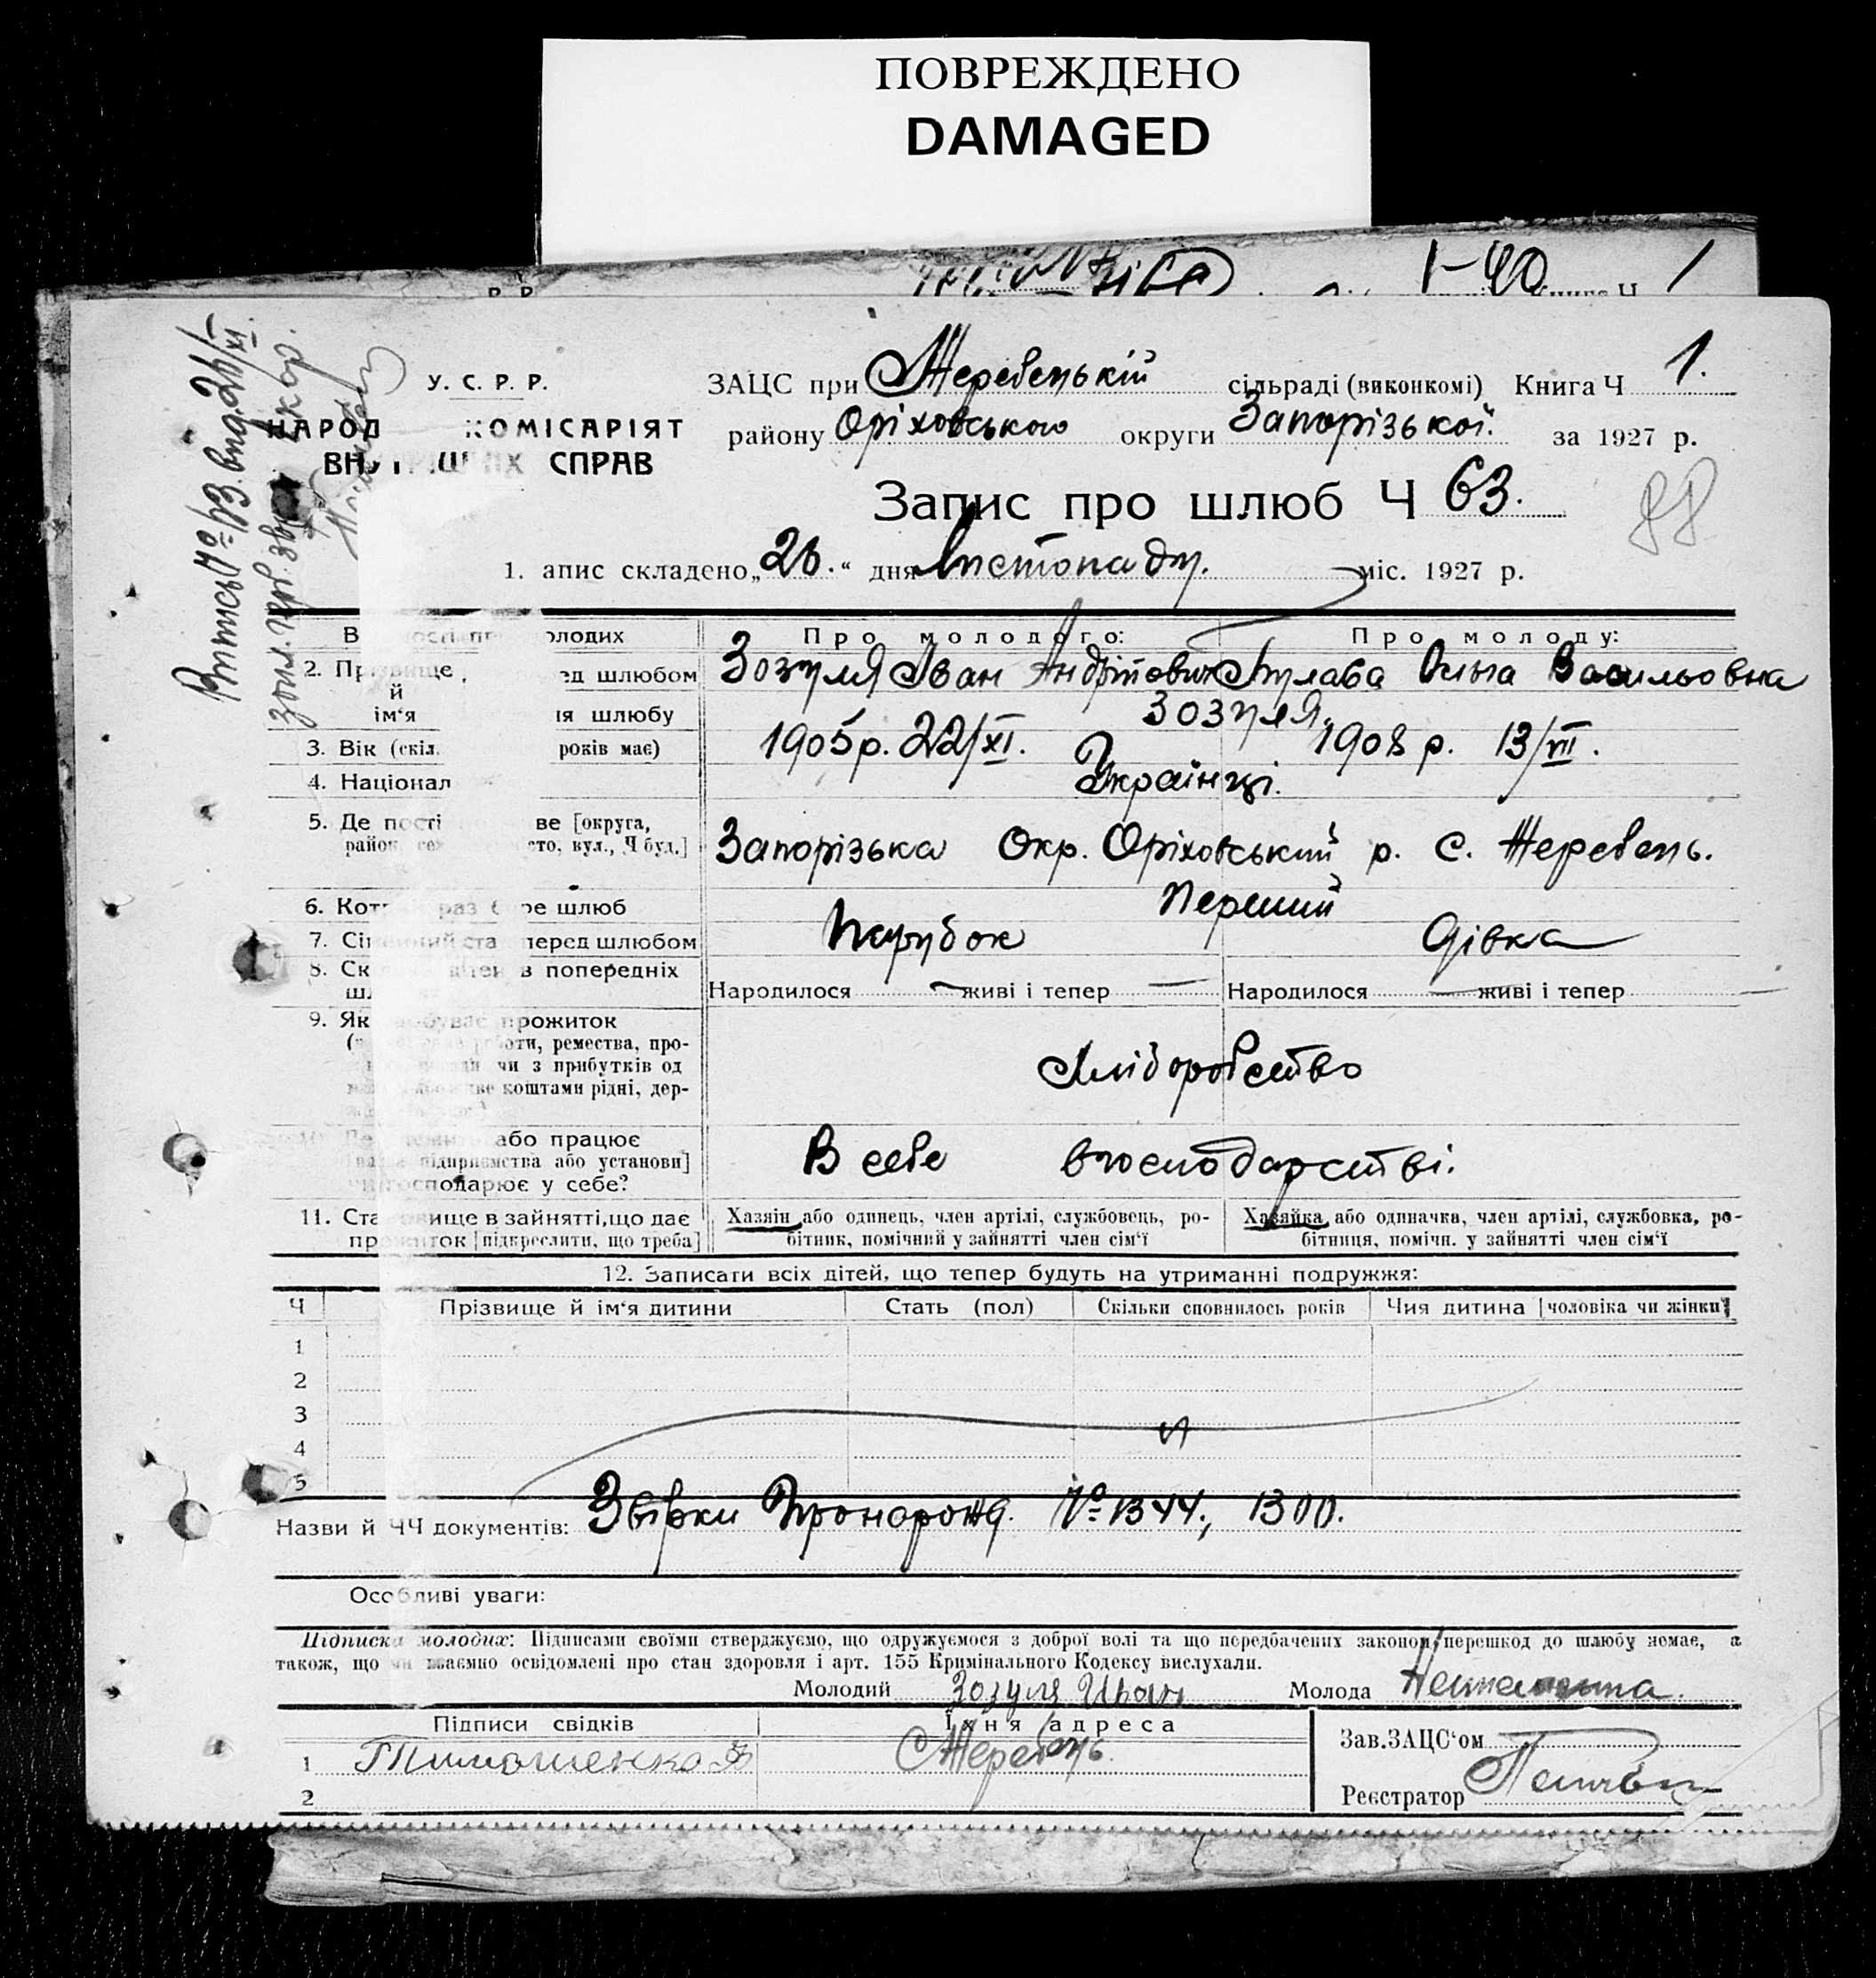 ПОВРЕЖДЕНО
DAMAGED
1-40 1
У. С. Р. Р.
НАРОД КОМІСАРІЯТ
СПРАВ
ЗАЦС при Жеребецькій сільраді (виконкомі) Книга Ч 1.
району Оріховського округи Запорізької. за 1927 р.
Запис про шлюб Ч 63.
88
1. апис складено „26.“ дня Листопаду. міс. 1927 р.
олодих Про молодого: Про молоду:
2. шлюбом Зозуля Іван Андрійович Ольга Васильовна
й
ім‘я шлюбу Зозуля.
3. Вік років має) 1905 р. 22/XI. 1908 р. 13/VII.
4. Національ Українці.
5. Де ве [округа,
район, сто, вул., Ч буд.] Запорізька Окр. Оріховський р. с. Жеребець.
6. раз шлюб Перший
7. перед шлюбом Парубок Дівка
8. в попередніх
Народилося — живі і тепер — Народилося — живі і тепер —
9. Як прожиток
ремества, про-
чи з прибутків од
коштами рідні, дер-
Хліборобство
або працює
підприємства або установи]
господарює у себе?
В себе в господарстві.
11. в зайнятті, що дає Хазяїн або одинець, член артілі, службовець, ро- Хазяйка або одиначка, член артілі, службовка, ро-
[підкреслити, що треба] бітник, помічний у зайнятті член сім‘ї бітниця, помічн. у зайнятті член сім‘ї
12. Записати всіх дітей, що тепер будуть на утриманні подружжя:
Ч Прізвище й ім‘я дитини Стать (пол) Скільки сповнилось років Чия дитина [чоловіка чи жінки]
1
2
3
4
5
Назви й ЧЧ документів: Звірки № 1344, 1300.
Особливі уваги:
Підписка молодих: Підписами своїми стверджуємо, що одружуємося з доброї волі та що передбачених законом перешкод до шлюбу немає, а
також, що взаємно освідомлені про стан здоровля і арт. 155 Кримінального Кодексу вислухали.
Молодий Зозуля Иван Молода Неписьменна.
Підписи свідків Їхня адреса Зав.ЗАЦС‘ом
1 Тимошенко Жеребець
Реєстратор
2